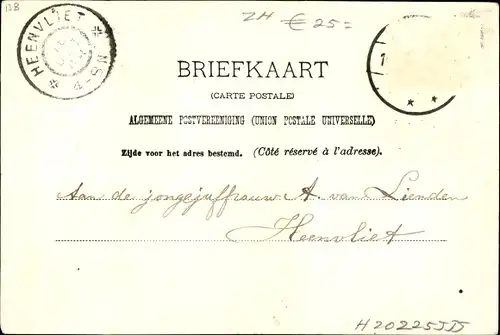 128
ZH € 25=
HEENVLIET
N 8-4
1
BRIEFKAART
(CARTE POSTALE)
ALGEMEENE POSTVEREENIGING (UNION POSTALE UNIVERSELLE)
Zijde voor het adres bestemd. (Côté réservé à l'adresse).
Aan de jongejuffrouw A. van Lienden
Heenvliet
H20225JJJ